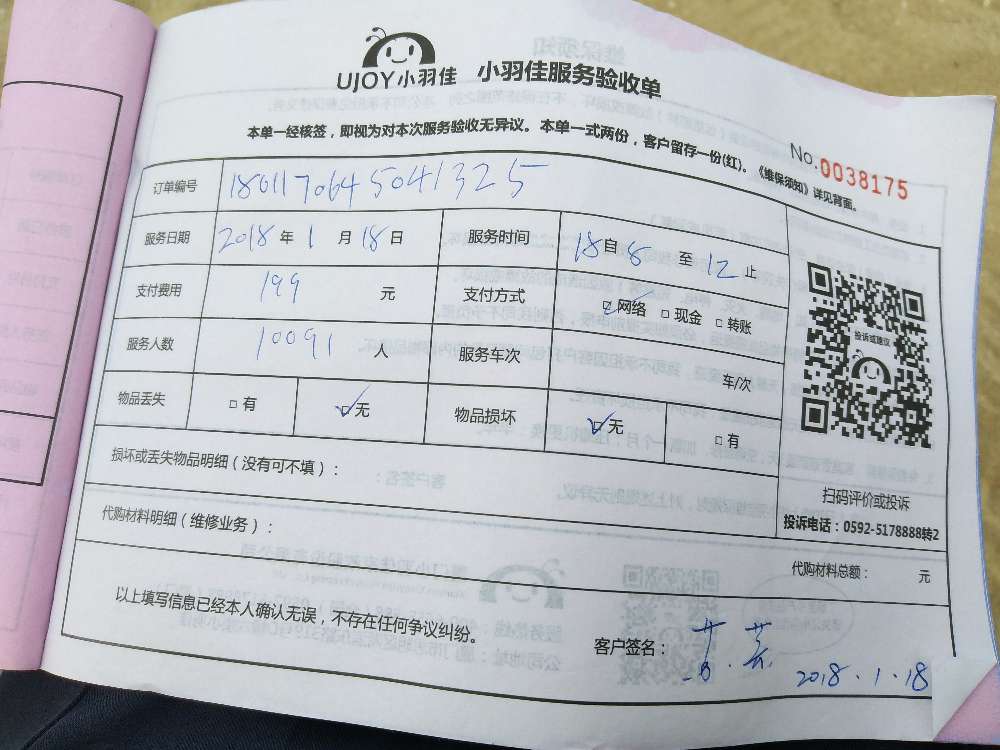 UJOY小羽佳 小羽佳服务验收单
本单一经核签，即视为对本次服务验收无异议。本单一式两份，客户留存一份(红)。《维保须知》详见背面。
No.0038175
订单编号 180117064504132 5
服务日期 2018年1月18日 服务时间 18自8至12止
支付费用 199元 支付方式 ☑网络 □现金 □转账
服务人数 10091人 服务车次 车/次
物品丢失 □有 ☑无 物品损坏 ☑无 □有
投诉或建议
损坏或丢失物品明细（没有可不填）：
扫码评价或投诉
投诉电话：0592-5178888转2
代购材料明细（维修业务）：
代购材料总额： 元
以上填写信息已经本人确认无误，不存在任何争议纠纷。
客户签名：
2018.1.18